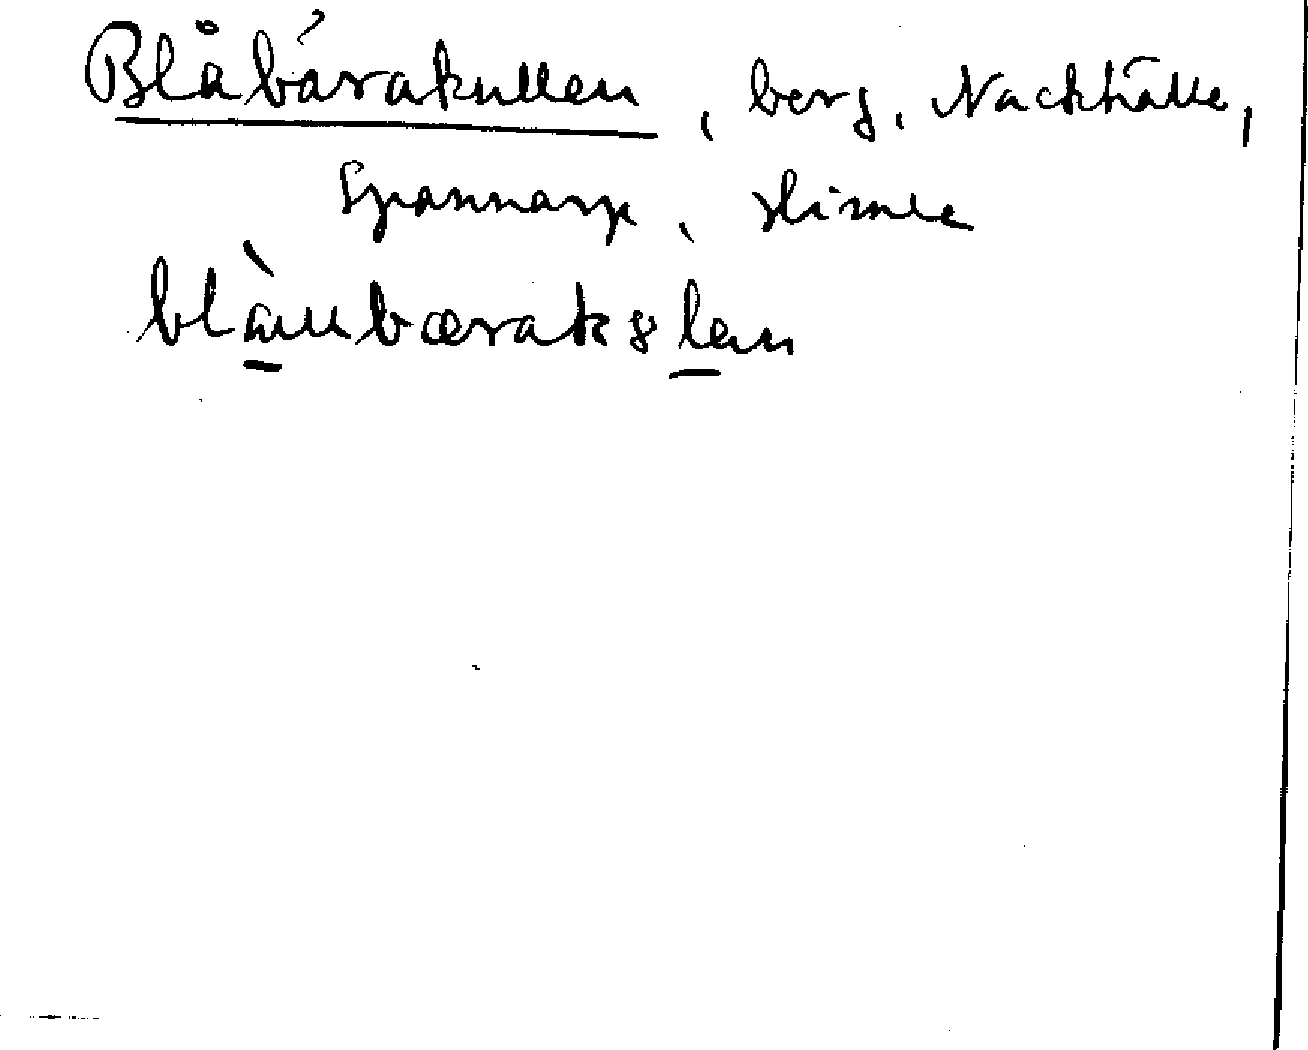 Blåbärakullen, berg, Nackhälle,
Spannarp, Himle
blàu bærak8len